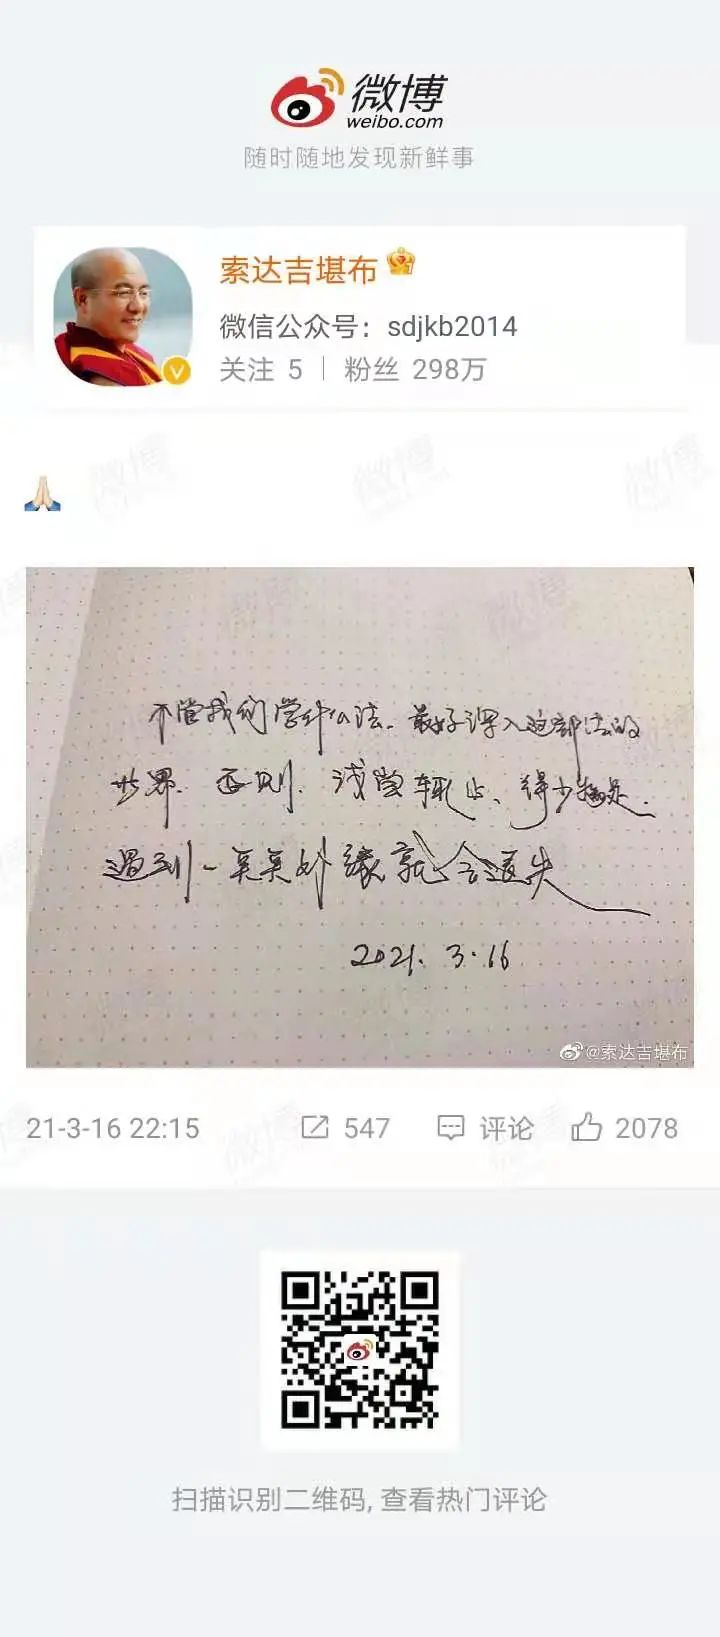 微博
weibo.com
随时随地发现新鲜事
索达吉堪布
微信公众号：sdjkb2014
关注 5 | 粉丝 298万
不管我们学什么法、最好深入这部法的
世界. 否则. 浅尝辄止、得少为足.
遇到一点点外缘就会遗失
2021. 3.16
@索达吉堪布
21-3-16 22:15 547 评论 2078
扫描识别二维码, 查看热门评论